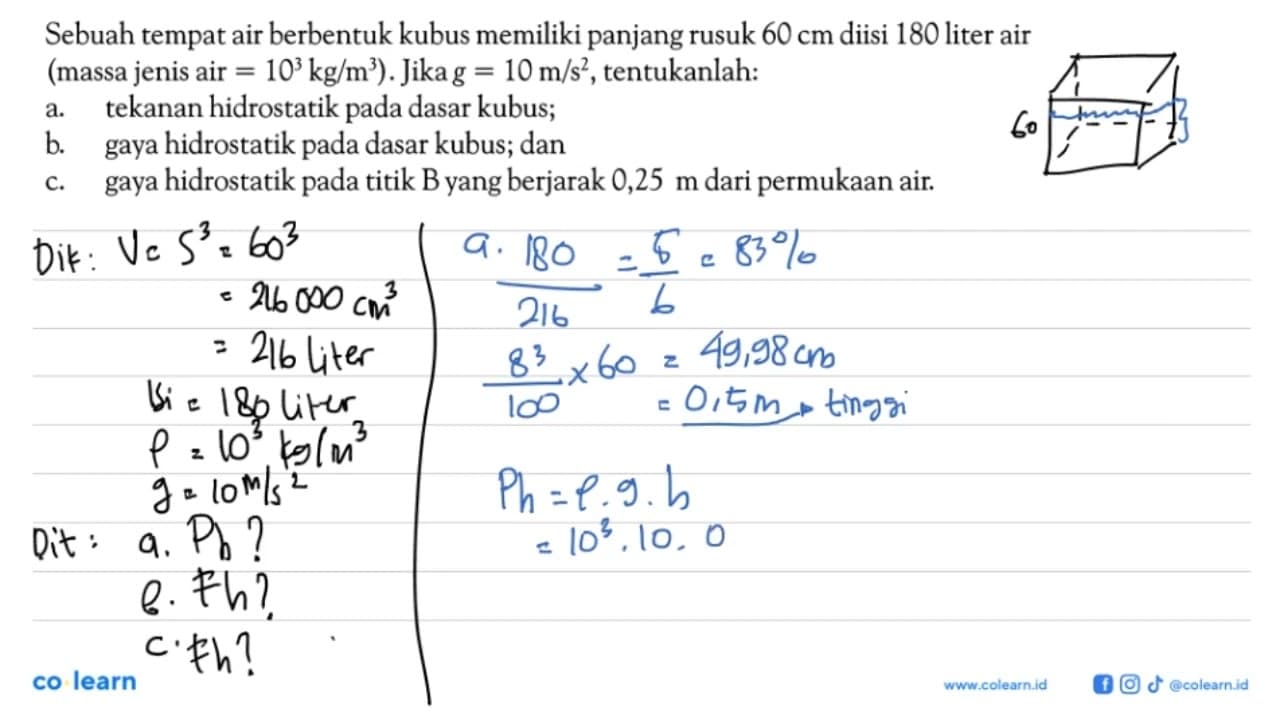 Sebuah tempat air berbentuk kubus memiliki panjang rusuk 60 cm diisi 180 liter air
(massa jenis air = 10³ kg/m³). Jika g = 10 m/s², tentukanlah:
a. tekanan hidrostatik pada dasar kubus;
b. gaya hidrostatik pada dasar kubus; dan
c. gaya hidrostatik pada titik B yang berjarak 0,25 m dari permukaan air.
60
Dik: V = S³ = 60³
= 216 000 cm³
= 216 liter
Isi = 180 liter
ρ = 10³ kg/m³
g = 10 m/s²
Dit: a. Ph?
b. Fh?
c. Fh?
a. 180/216 = 5/6 = 83%
83/100 × 60 = 49,98 cm
= 0,5 m → tinggi
Ph = ρ . g . h
= 10³ . 10 . 0
co learn
www.colearn.id
@colearn.id